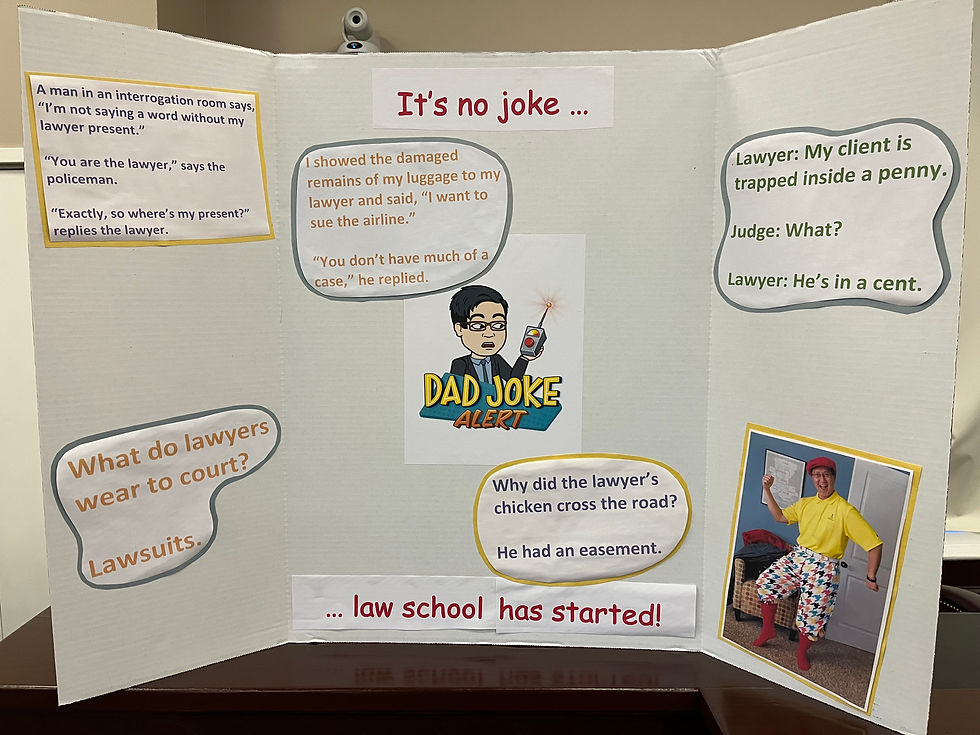 It's no joke ...
A man in an interrogation room says,
"I'm not saying a word without my
lawyer present."
"You are the lawyer," says the
policeman.
"Exactly, so where's my present?"
replies the lawyer.
I showed the damaged
remains of my luggage to my
lawyer and said, "I want to
sue the airline."
"You don't have much of a
case," he replied.
Lawyer: My client is
trapped inside a penny.
Judge: What?
Lawyer: He's in a cent.
DAD JOKE
ALERT
What do lawyers
wear to court?
Lawsuits.
Why did the lawyer's
chicken cross the road?
He had an easement.
... law school has started!